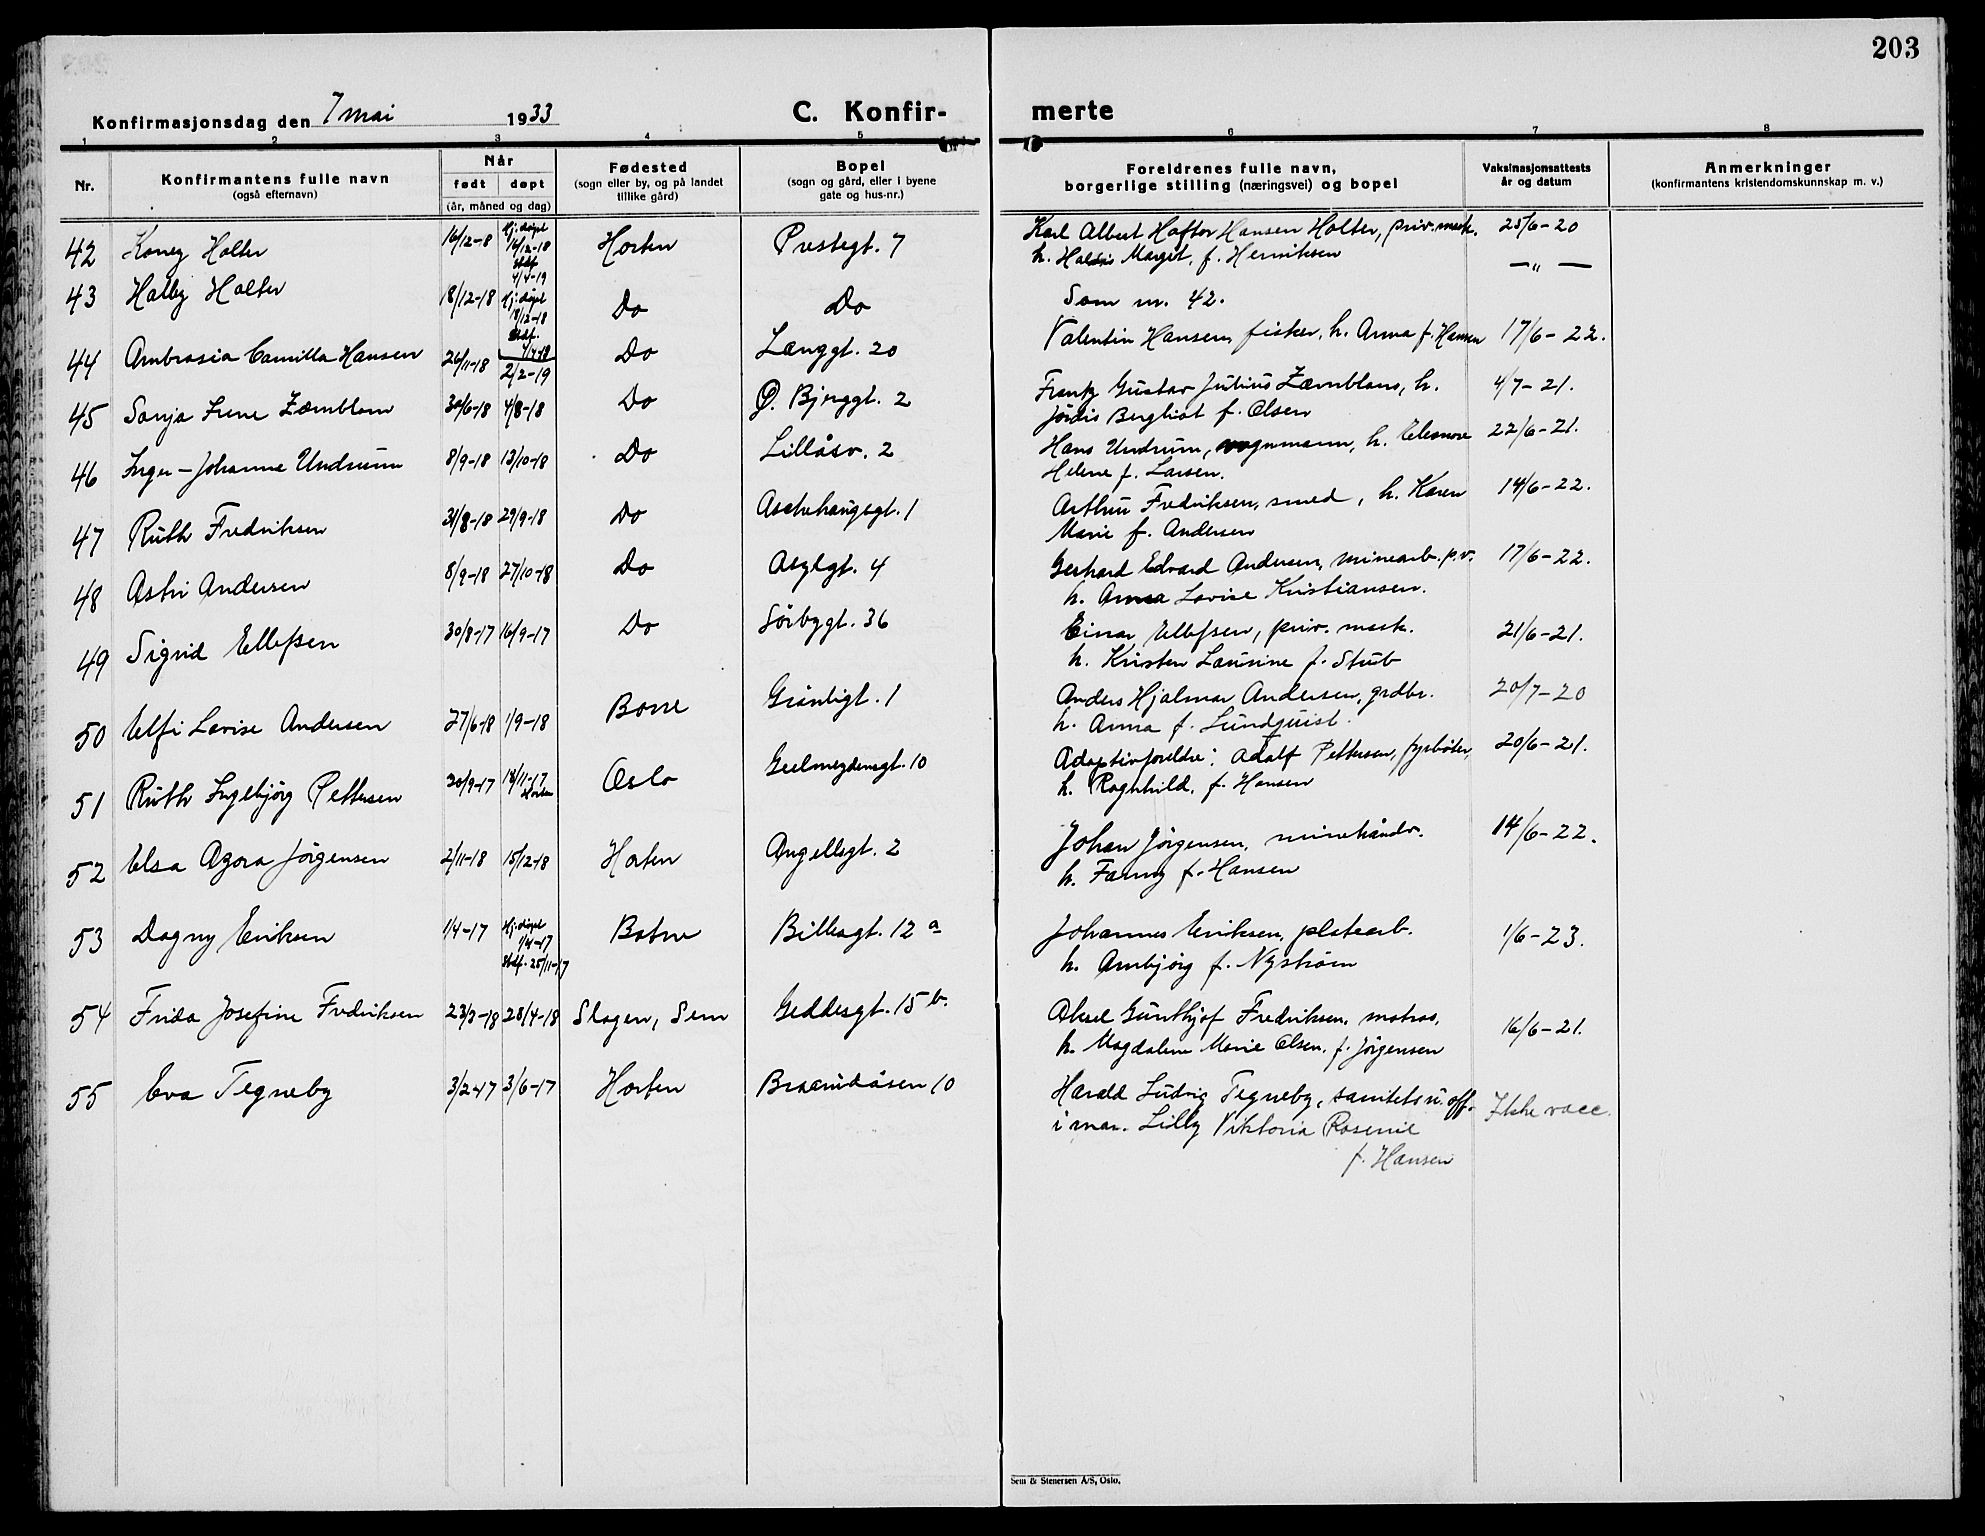 203
Konfirmasjonsdag den 7 mai 1933
C. Konfirmerte
1 2 3 4 5 6 7 8
Nr.
Konfirmantens fulle navn
(også efternavn)
Når
født døpt
(år, måned og dag)
Fødested
(sogn eller by, og på landet
tillike gård)
Bopel
(sogn og gård, eller i byene
gate og hus-nr.)
Foreldrenes fulle navn,
borgerlige stilling (næringsvei) og bopel
Vaksinasjonsattests
år og datum
Anmerkninger
(konfirmantens kristendomskunnskap m. v.)
42 Holter 16/12-8 Hj. døpt 16/12-18 Stdf. 4/4-19 Horten Prestegt. 7 Karl Albert Hansen Holter, priv. mask. 25/6-20
h. Margit, f. Henriksen
43 Holter 18/12-18 Hj. døpt 18/12-18 Stdf. Do Do Som nr. 42. — " —
44 Ambrosia Camilla Hansen 26/11-18 2/2-19 Do Langgt. 20 Valentin Hansen, fisker, h. Anna f. Hansen 17/6-22.
45 Sonja Irene 30/6-18 4/8-18 Do Ø. Bjerggt. 2 Gustav Julius h. 4/7-21.
Jørdis Bergliot f. Olsen
46 Inger-Johanne Undrum 8/9-18 13/10-18 Do Lillåsv. 2 Hans Undrum, vognmann, h. Eleonore 22/6-21.
Helene f. Larsen.
47 Ruth Fredriksen 31/8-18 29/9-18 Do Aschehougsgt. 1 Arthur Fredriksen, smed, h. Karen 14/6-22.
Marie f. Andersen
48 Astri Andersen 8/9-18 27/10-18 Do Asylgt. 4 Gerhard Edvard Andersen, minearb. p.v. 17/6-22.
h. Anna Lovise Kristiansen.
49 Sigrid Ellefsen 30/8-17 16/9-17 Do Sörbygt. 36 Einar Ellefsen, priv. mask. 21/6-21.
h. Kristen Laurine f. Stub
50 Elfi Lovise Andersen 27/6-18 1/9-18 Borre Grönligt. 1 Anders Hjalmar Andersen, grdbr. 20/7-20
h. Anna f. Lundquist.
51 Ruth Ingebjörg Pettersen 30/9-17 18/11-17 Horten Oslo Geelmeydensgt. 10 Adoptivforeldre: Adolf Pettersen, fyrböter, 20/6-21.
h. Raghnhild, f. Hansen
52 Elsa Agora Jörgensen 2/11-18 15/12-18 Horten Angellsgt. 2 Johan Jörgensen, minehåndv. 14/6-22.
h. Fanny f. Hansen
53 Dagny Eriksen 1/4-17 Hj. døpt 1/4-17 Stdf. 25/11-17 Botne Billesgt. 12 a Johannes Eriksen, platearb. 1/6-23.
h. Arnbjörg f. Nyström
54 Frida Josefine Fredriksen 23/3-18 28/4-18 Slagen, Sem Geddesgt. 15 b. Aksel Fredriksen, matros, 16/6-21.
h. Magdalene Marie Olsen, f. Jörgensen
55 Eva Tegneby 3/2-17 3/6-17 Horten Braarudåsen 10 Harald Ludvig Tegneby, sanitets u. off. Ikke vacc.
i mar. Lilly Viktoria
f. Hansen
Sem & Stenersen A/S, Oslo.